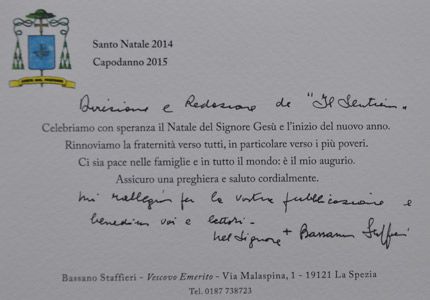 Santo Natale 2014
Capodanno 2015
Direzione e Redazione de "Il Sentiero"
Celebriamo con speranza il Natale del Signore Gesù e l'inizio del nuovo anno.
Rinnoviamo la fraternità verso tutti, in particolare verso i più poveri.
Ci sia pace nelle famiglie e in tutto il mondo: è il mio augurio.
Assicuro una preghiera e saluto cordialmente.
mi rallegro per la vostra pubblicazione e
benedico voi e lettori -
nel Signore + Bassano Staffieri
Bassano Staffieri - Vescovo Emerito - Via Malaspina, 1 - 19121 La Spezia
Tel. 0187 738723